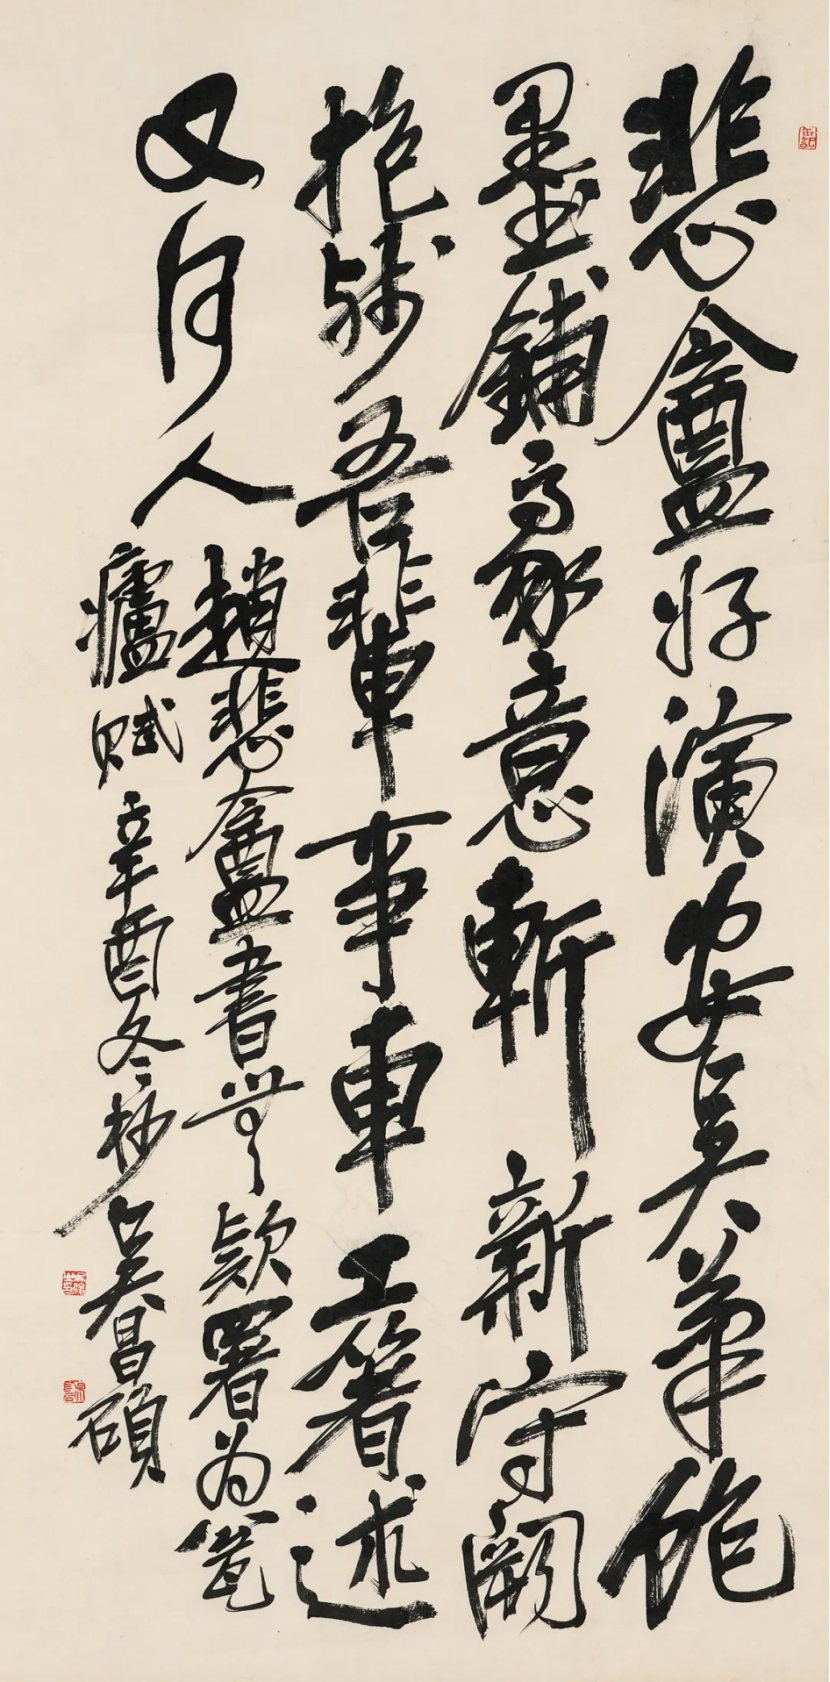 悲盦好演安吳筆飽
墨鋪豪意斬新守闕
抱殘吾輩事車工箸述
又何人
趙悲盦書無款署為瓮
廬賦辛酉冬杪吳昌碩